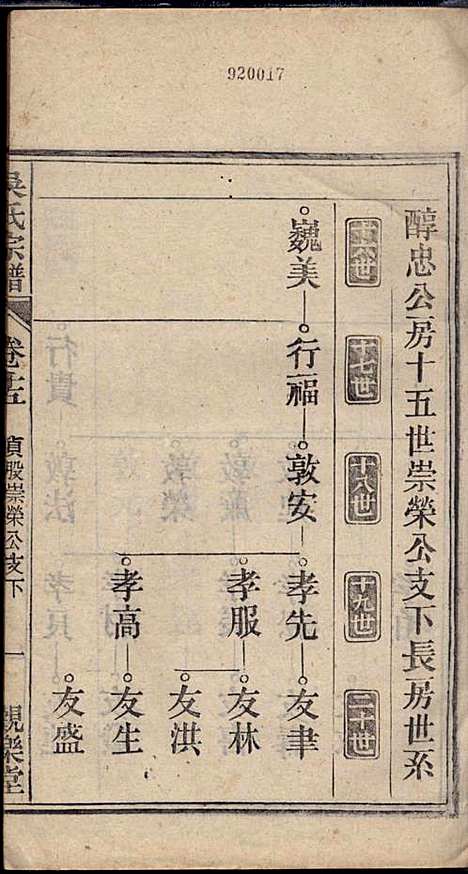 920017
醇忠公房十五世崇榮公支下長房世系
十六世
十七世
十八世
十九世
二十世
巍美
行福
敦安
孝先
友聿
孝服
友林
友洪
孝高
友生
友盛
吳氏宗譜
卷十五
貞股崇榮公支下
一
親樂堂